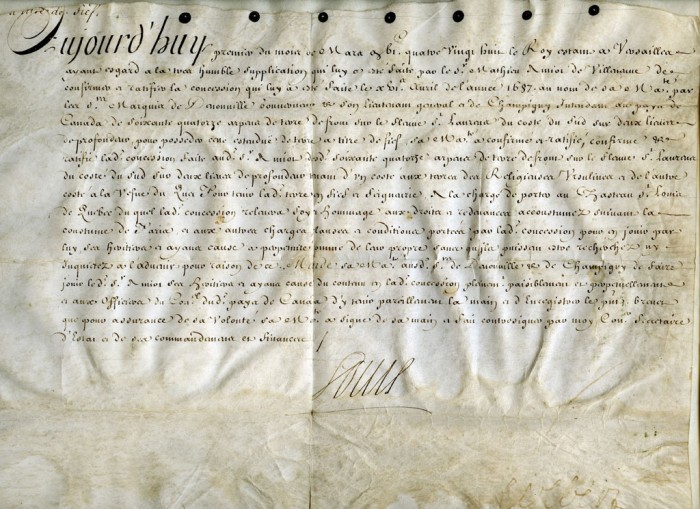 Aujourd'huy premier du mois de Mars gbi^c quatre vingt huit le Roy estant a Versailles
ayant esgard a la tres humble supplication qui luy a esté faite par le S.^r Mathieu Amiot de Villeneuve de
confirmer et ratifier la concession qui luy a esté faite le xvi. Avril de l'année 1687. au nom de sa Ma.^té par
les s.^rs Marquis de Denonville Gouverneur et son Lieutenant general et de Champigny Intendant au pays de
Canada de soixante quatorze arpens de terre de front sur le fleuve S.^t Laurens du costé du sud sur deux lieues
de profondeur, pour posseder cette estendue de terre a titre de fief, sa Ma.^té a confirmé et ratifié, confirme et
ratifie lad. concession faite aud. s.^r Amiot desd. soixante quatorze arpens de terre de front sur le fleuve S.^t Laurens
du costé du sud sur deux lieues de profondeur d'un costé aux terres des Religieuses Urselines et de l'autre
costé a la Vefve du Quet Pour tenir lad. terre en fief et seigneurie A la charge de porter au Chasteau S.^t Louis
de Quebec duquel lad. concession relevera foy et hommage aux droits et redevances accoustumez suivant la
coustume de Paris et aux autres charges clauses et conditions portées par lad. concession pour en jouir par
luy, ses heritiers et ayans cause a perpetuité comme de leur propre sans qu'ils puissent estre recherchez ny
inquietez a l'advenir pour raison de ce. Mande sa Ma.^té ausd. s.^rs de Denonville et de Champigny de faire
jouir led. s.^r Amiot ses heritiers et ayans cause du contenu en lad. concession plainem.^t paisiblement et perpetuellement
et aux Officiers du Con.^l dud. pays de Canada d'y tenir pareillement la main et d'Enregistrer le pnt brevet
que pour asseurance de sa Volonté sa Ma.^té a signé de sa main et fait contresigner par moy Con.^er Secretaire
d'Estat et de ses commandemens et finances
Louis